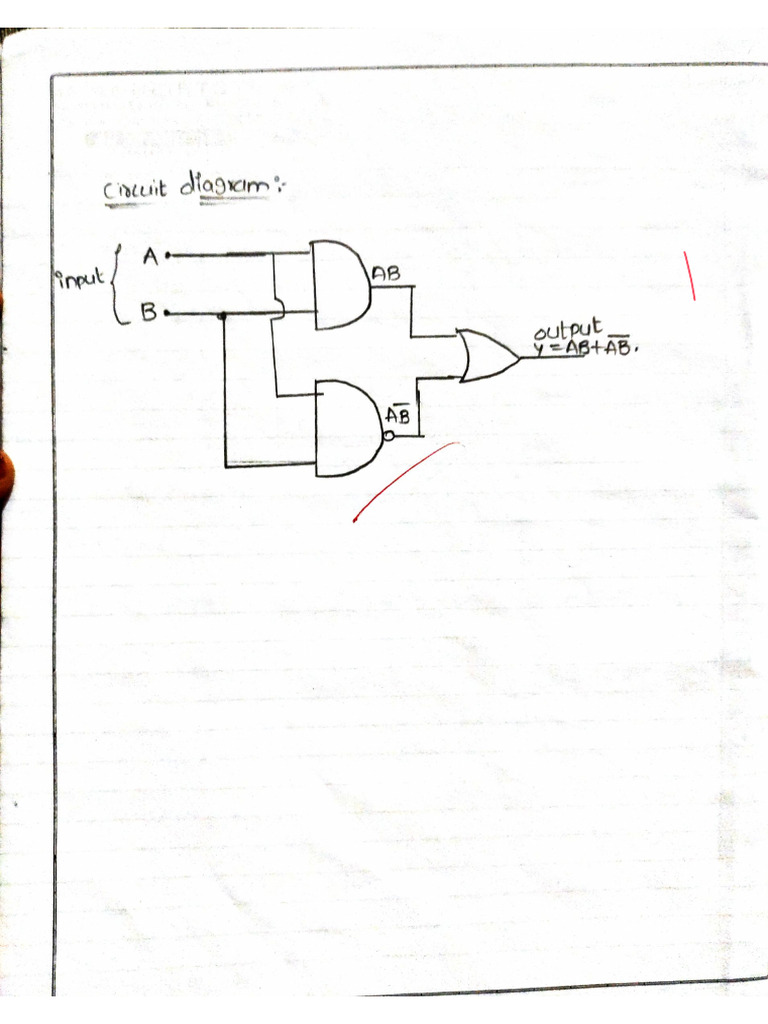 Circuit diagram:-
input
A
B
AB
A͞B͞
output
y = AB + A͞B͞.